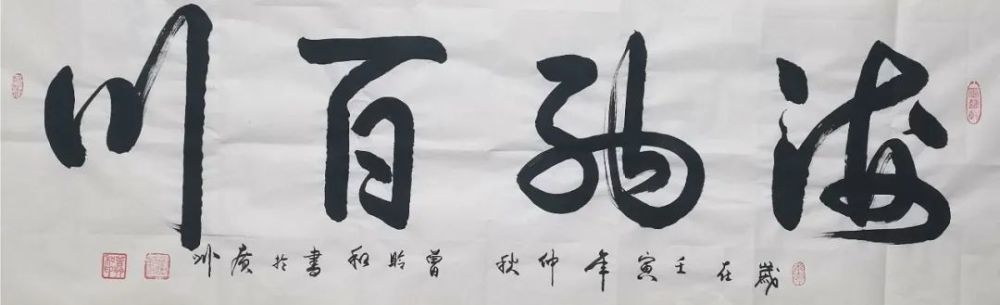 海納百川
歲在壬寅年仲秋 曾聆和書於廣州